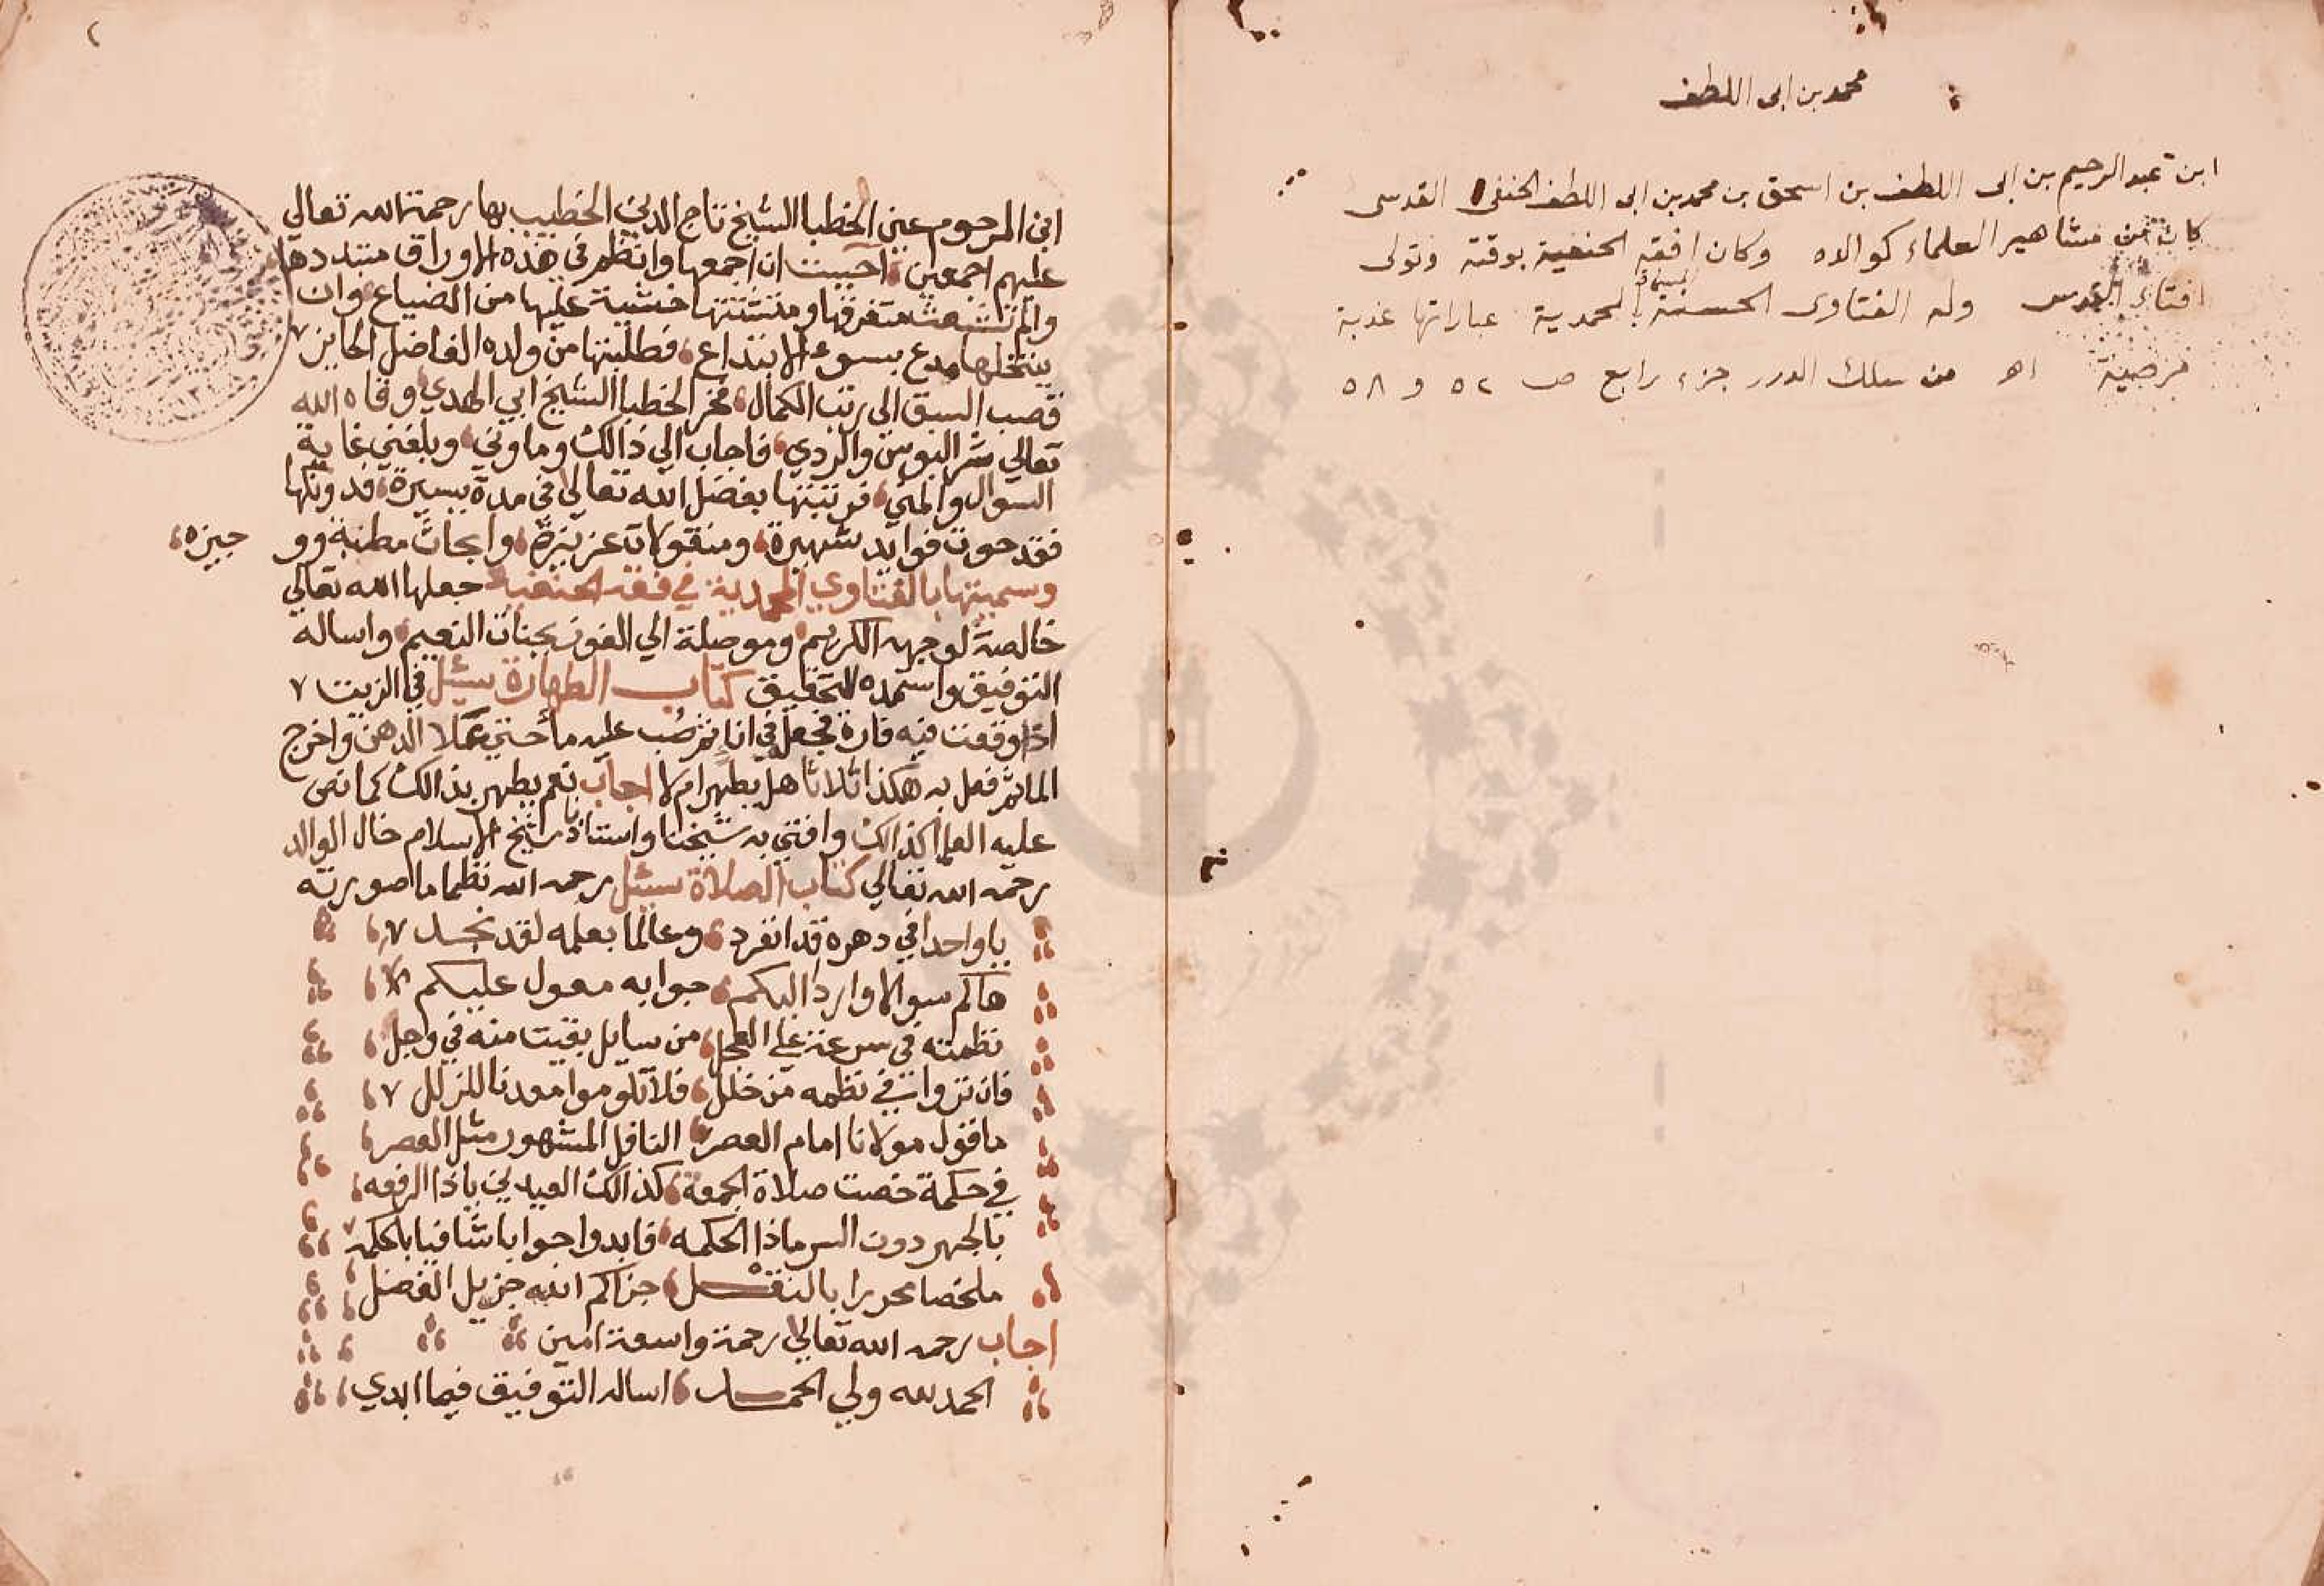 محمد بن ابى اللطف
ابن عبد الرحيم بن ابى اللطف بن اسحق بن محمد بن ابى اللطف الحنفى القدسى
كان من مشاهير العلماء كوالده وكان افقه الحنفية بوقته وتولى
افتاء القدس وله الفتاوى الحسنة المسماة بالمحمدية عباراتها عذبة
مرضية اه من سلك الدرر جزء رابع ص ٥٢ و ٥٨
ابن المرحوم عين الخطبا الشيخ تاج الدين الخطيب بها رحمة الله تعالي
عليهم اجمعين احببت ان اجمعها وانظم في هذه الاوراق متبددها
والم تشعث متفرقها ومتشتتها خشية عليها من الضياع وان
ينتحلها مدع بسوء الابتداع فطلبتها من ولده الفاضل الحايز
قصب السبق الي رتب الكمال فخر الخطبا الشيخ ابي الهدي وقاه الله
تعالي شر البوس والردي فاجاب الي ذالك وما وني وبلغني غاية
السوال والمني فرتبتها بفضل الله تعالي في مدة يسيرة فدونكها
فقد حوت فوايد شهيرة ومنقولات عزيزة وابحاث مطنبة وو
جيزه
وسميتها بالفتاوي المحمدية في فقه الحنفية جعلها الله تعالي
خالصة لوجهه الكريم وموصلة الي الفوز بجنات النعيم واساله
التوفيق واستمده للتحقيق كتاب الطهارة سئل في الزيت
اذا وقعت فيه فارة فجعل في انا ثم صب عليه ما حتي علا الدهن واخرج
الما ثم فعل به هكذا ثلاثا هل يطهر ام لا اجاب نعم يطهر بذالك كما نص
عليه العلما كذالك وافتي به شيخنا واستاذنا شيخ الاسلام خال الوالد
رحمه الله تعالي كتاب الصلاة سئل رحمه الله نظما ما صورته
يا واحدا في دهره قد انفرد وعالما بعلمه لقد نجد
هاكم سوالا واردا اليكم جوابه معول عليكم
نظمته في سرعة علي العجل من سايل بقيت منه في وجل
فان تروا في نظمه من خلل فلا تلوموا موذنا للزلل
ما قول مولانا امام العصر الناقل المشهور مثل العصر
في حكمة خصت صلاة الجمعة كذالك العيدين ياذا الرفعه
بالجهر دون السر ماذا الحكمه فابدوا جوابا شافيا بالحكمه
ملخصا محررا بالنقل جزاكم الله جزيل الفضل
اجاب رحمه الله تعالي رحمة واسعة امين
الحمد لله ولي الحمد اساله التوفيق فيما ابدي